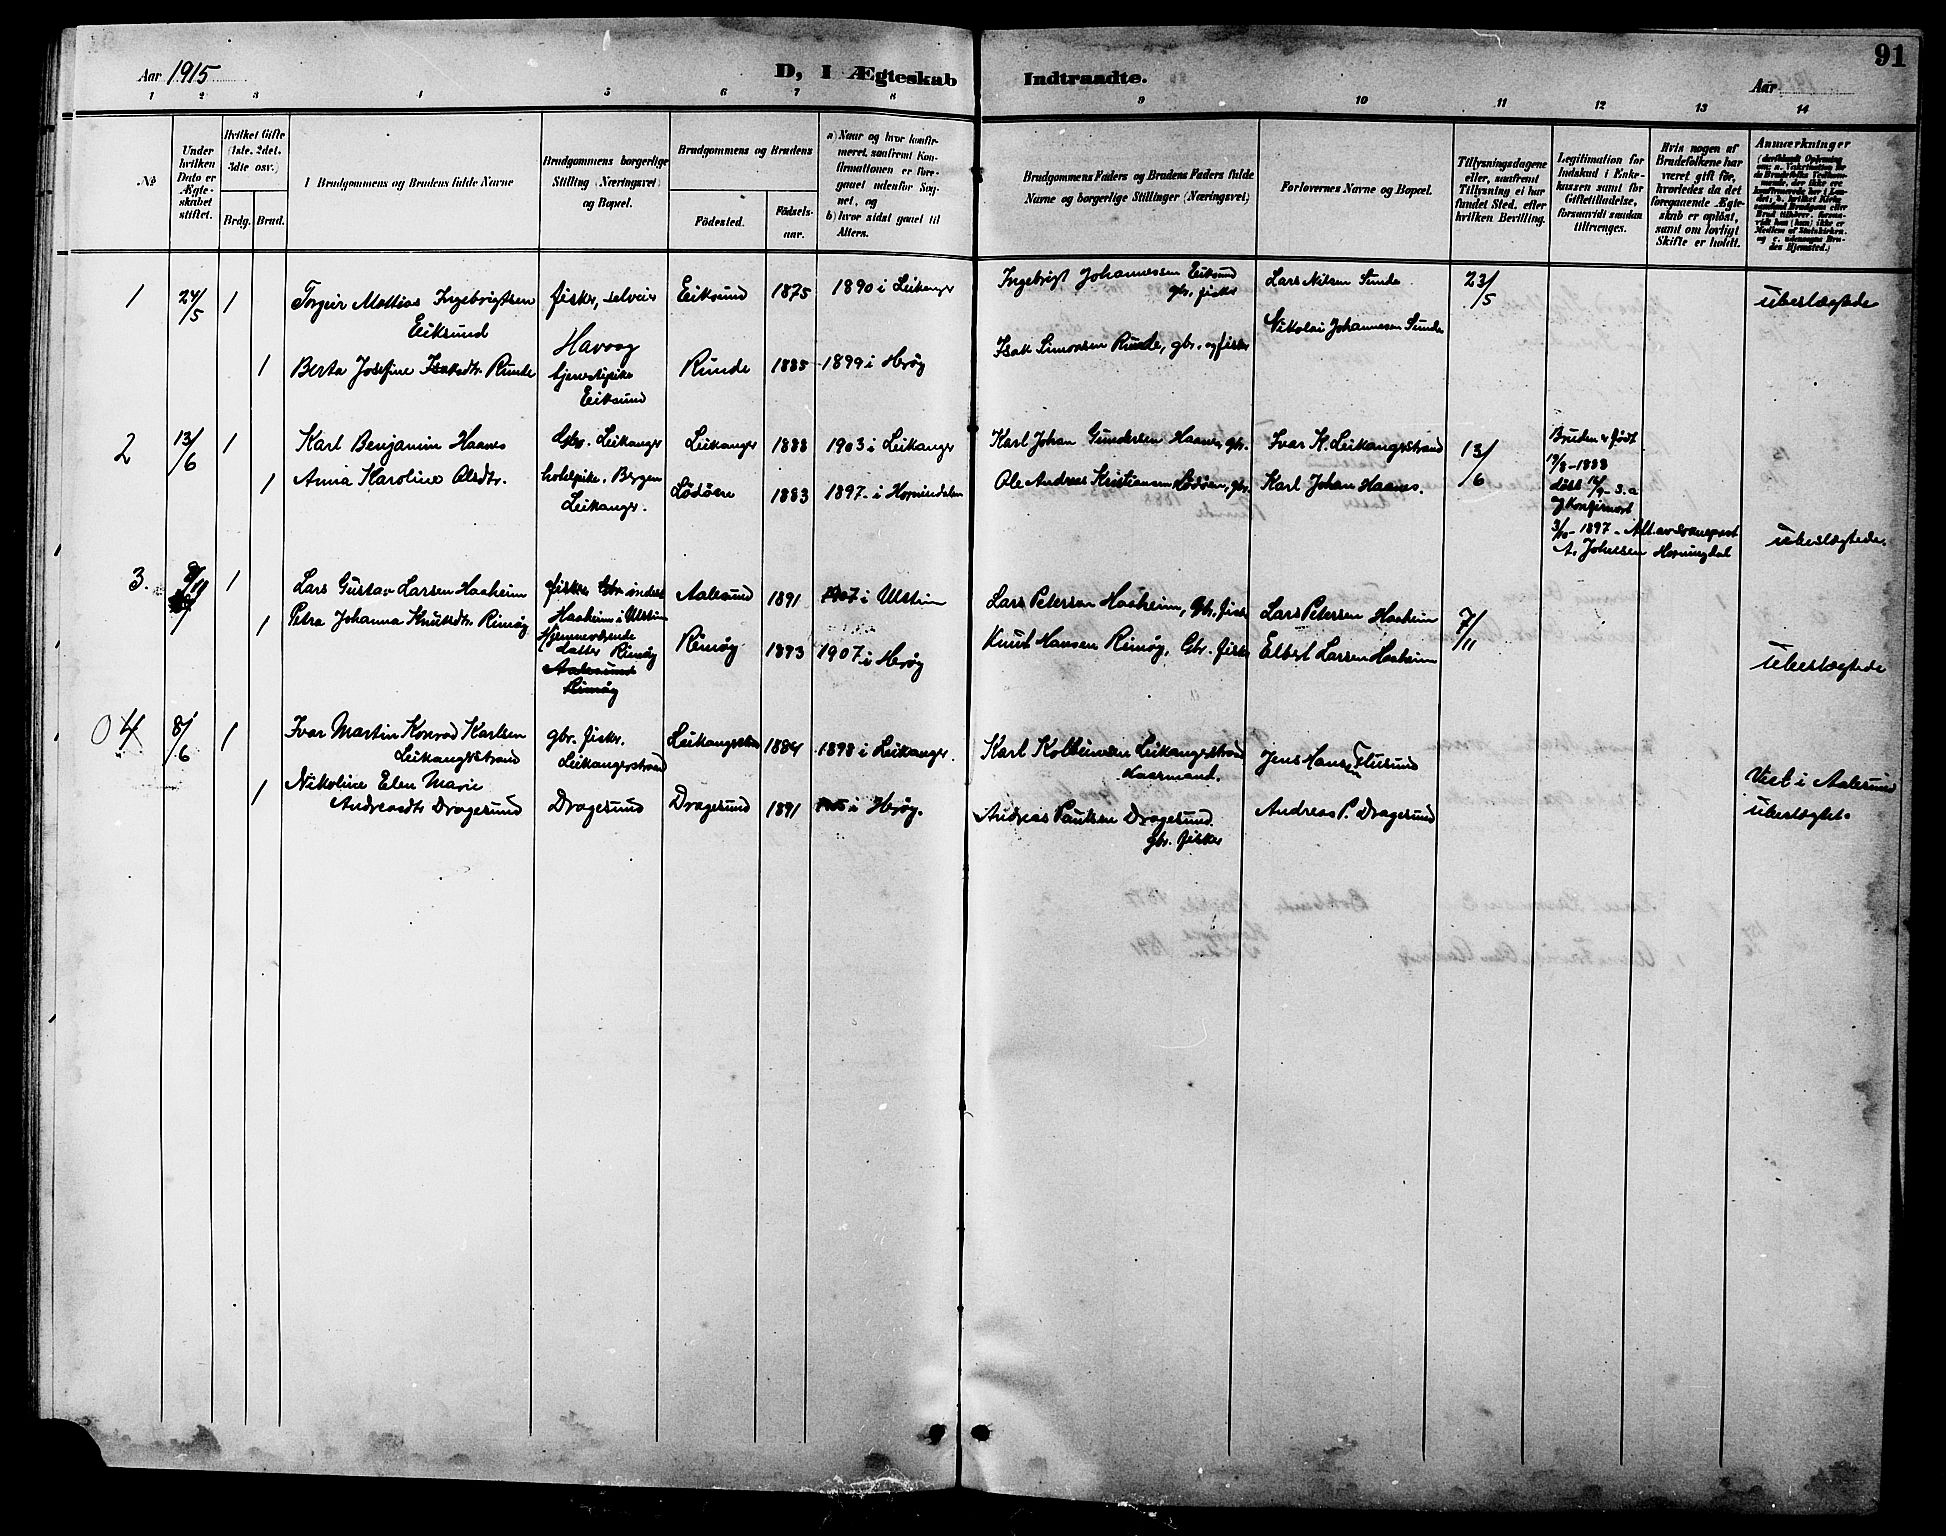 91
Aar 1915
D, I Ægteskab
Indtraadte.
Aar
1 2 3 4 5 6 7 8 9 10 11 12 13 14
№
Under hvilken Dato er Ægteskabet stiftet.
Hvilket Gifte (1ste, 2det, 3dte osv.)
Brdg. Brud.
Brudgommens og Brudens fulde Navne
Brudgommens borgerlige Stilling (Næringsvei) og Bopæl.
Brudgommens og Brudens
Födested.
Födselsaar.
a) Naar og hvor konfirmeret, saafremt Konfirmationen er foregaaet udenfor Sognet, og
b) hvor sidst gaaet til Alters.
Brudgommens Faders og Brudens Faders fulde Navne og borgerlige Stillinger (Næringsvei)
Forlovernes Navne og Bopæl.
Tillysningsdagene eller, saafremt Tillysning ei har fundet Sted, efter hvilken Bevilling.
Legitimation for Indskud i Enkekassen samt for Giftetilladelse, forsaavidt saadan tiltrænges.
Hvis nogen af Brudefolkene har været gift før, hvorledes da det foregaaende Ægteskab er opløst, samt om lovligt Skifte er holdt.
Anmærkninger
1 24/5 1 Torgier Mattias Ingebrigtsen fisker, selveier Eiksund 1875 1890 i Leikanger Ingebrigt Johannessen Eiksund Lars Nilsen Sunde 23/5 ubeslægtede
Eiksund Havaag gbr. fisker Nikolai Johannesen Sunde
1 Berta Josefine Isaksdtr. Runde tjenestepike Runde 1885 1899 i Herøy Isak Simonsen Runde, gbr. og fisker
Eiksund
2 13/6 1 Karl Benjamin Haanes Gbr. Leikanger Leikanger 1888 1903 i Leikanger Karl Johan Gundersen Haanes, gbr. Ivar K. Leikangerstrand 13/6 Bruden er født
1 Anna Karoline Olsdtr. hotelpike, Bergen Lødøen 1883 1897 i Hornindalen Ole Andreas Kristiansen Lødøen, gbr. Karl Johan Haanes.
Leikanger.
Døbt 16/9 - s. a
og Konfirmert
3/10 - 1897 - Att. av sogneprest
A. Johnssen Horningdal ubeslægtede.
3. 8/11 1 Lars Gustav Larsen Haaheim fisker Gbr. Aalesund 1891 1907 i Ulstein Lars Petersen Haaheim, Gbr. fisker Lars Petersen Haaheim 7/11
1 Petra Johanna Knutsdtr. Rimøy Haaheim i Ulstein Hjemmeværende datter Rimøy Rimøy 1893 1907 i Herøy Knut Hansen Rimøy, Gbr. fisker Elbert Larsen Haaheim ubeslægtede
Aalesund
Rimøy
4 8/6 1 Ivar Martin Konrad Karlsen gbr. fisker. Leikangerstrand 1884 1898 i Leikanger. Karl Kolbeinsen Leikangerstrand Jens Hansen Flusund
Leikangerstrand Leikangerstrand kaarmand. Viet i Aalesund
1 Nikoline Elen Marie
Andreasdtr Dragesund Dragesund Dragesund 1891 1905 i Herøy. Andreas Paulsen Dragesund. Andreas P. Dragesund ubeslægtet.
gbr. fisker